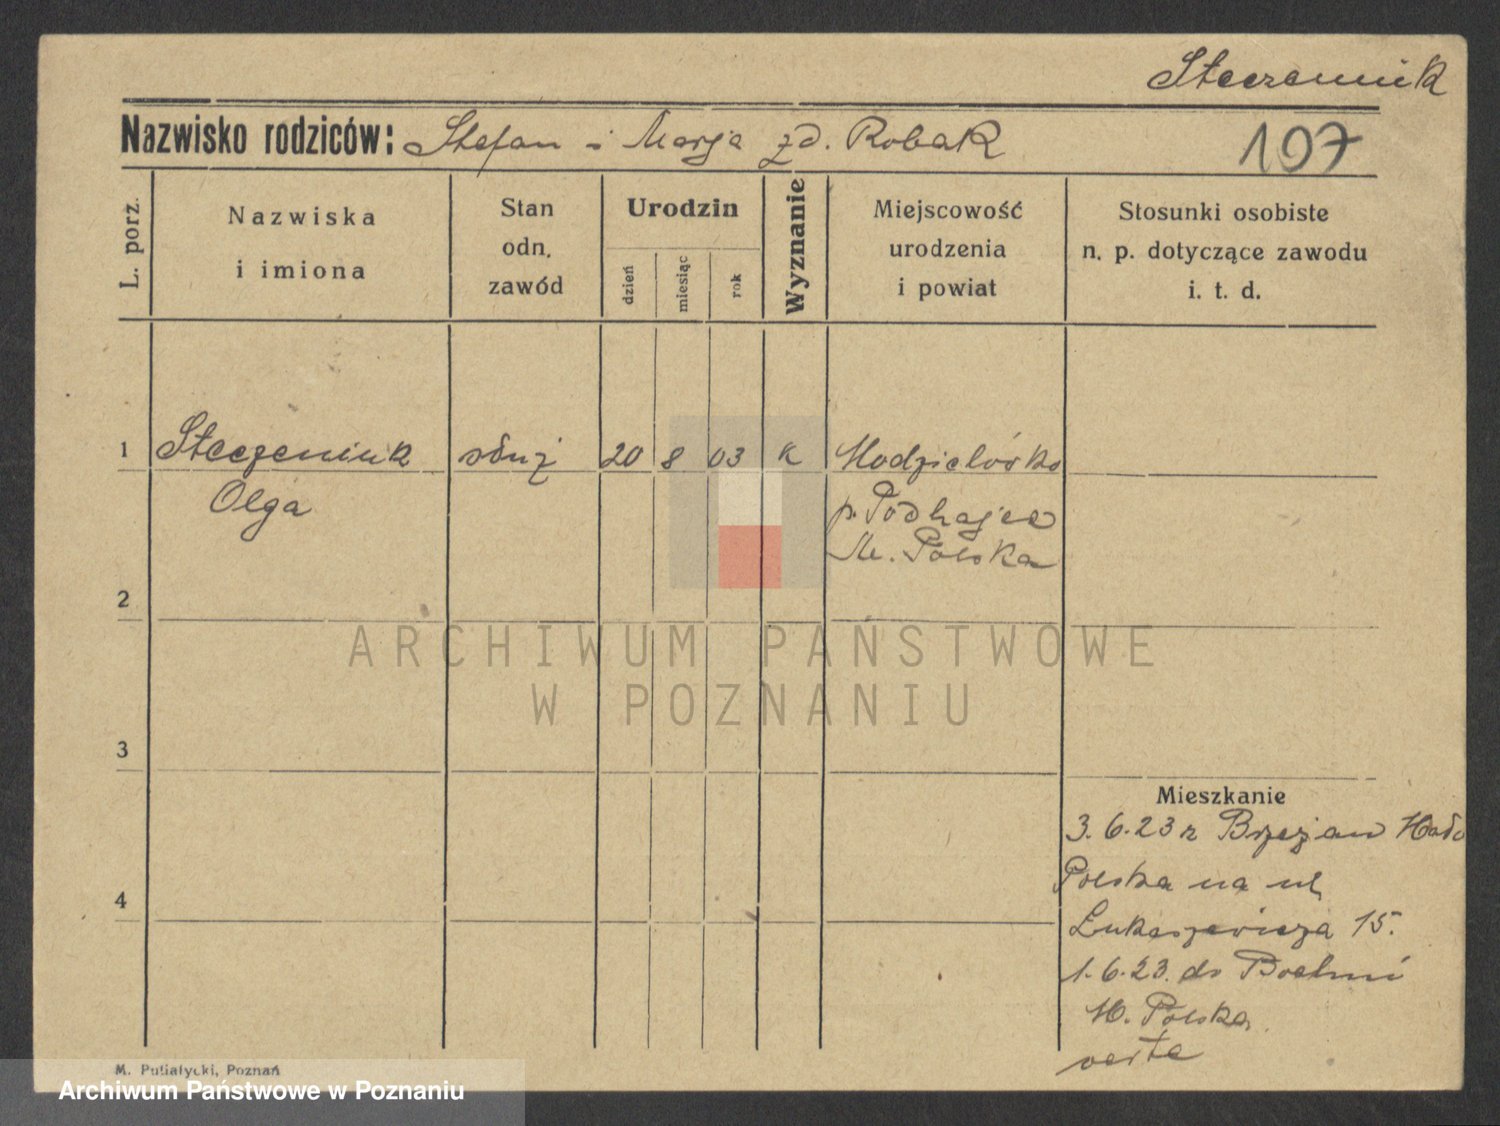 Steczeniuk
Nazwisko rodziców: Stefan i Marja zd. Robak
107
L. porz.
Nazwiska
i imiona
Stan
odn.
zawód
Urodzin
dzień
miesiąc
rok
Wyznanie
Miejscowość
urodzenia
i powiat
Stosunki osobiste
n. p. dotyczące zawodu
i. t. d.
1 Steczeniuk służ 20 8 03 K
Olga
p. Podhajce
M. Polska
2
ARCHIWUM PAŃSTWOWE
W POZNANIU
3
Mieszkanie
3.6.23 z Brzeżan Mało
Polska na ul.
4
Łukaszewicza 15.
1.6.23. do
M. Polska
verte
M. Putiatycki, Poznań
Archiwum Państwowe w Poznaniu